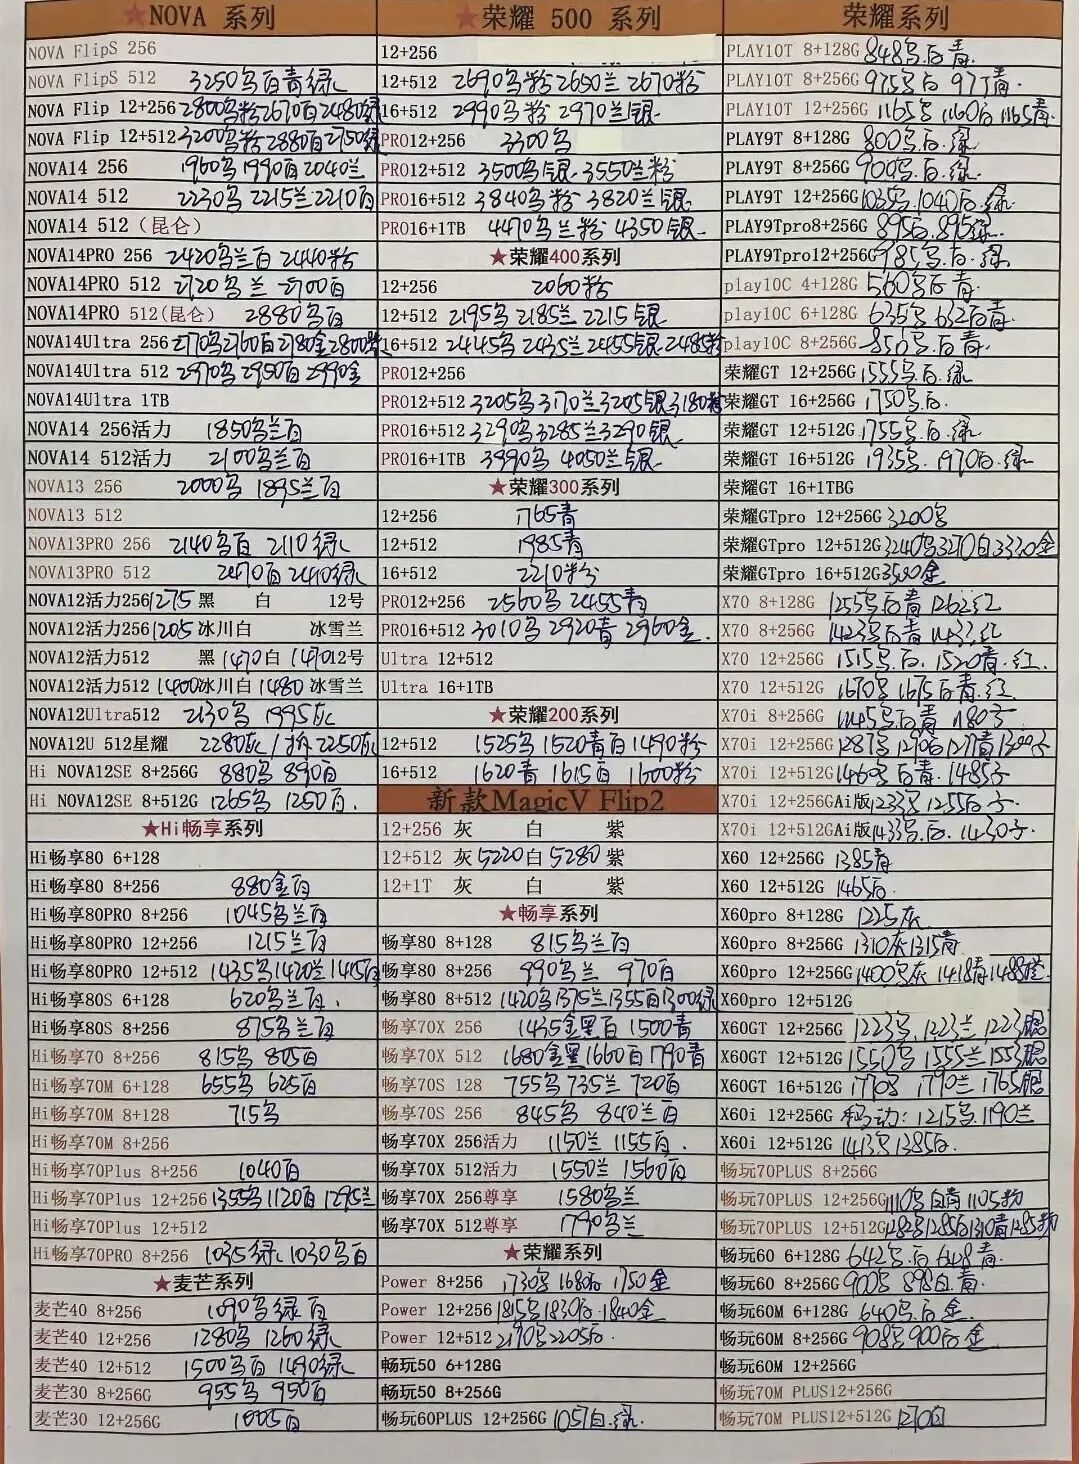 ★NOVA 系列
NOVA FlipS 256
NOVA FlipS 512 3250乌白青绿
NOVA Flip 12+256 2800乌粉2670白2480绿
NOVA Flip 12+512 3200乌粉2880白2750绿
NOVA14 256 1960乌1990白2040兰
NOVA14 512 2230乌2215兰2210白
NOVA14 512（昆仑）
NOVA14PRO 256 2420乌兰白2440粉
NOVA14PRO 512 2720乌兰 2700白
NOVA14PRO 512(昆仑) 2880乌白
NOVA14Ultra 256 2770乌2760白2780金2800
NOVA14Ultra 512 2970乌2950白2990金
NOVA14Ultra 1TB
NOVA14 256活力 1850乌兰白
NOVA14 512活力 2100乌兰白
NOVA13 256 2000乌 1895兰白
NOVA13 512
NOVA13PRO 256 2140乌白 2110绿
NOVA13PRO 512 2470白2410绿
NOVA12活力256 1275黑 白 12号
NOVA12活力256 1205冰川白 冰雪兰
NOVA12活力512 黑1470白147012号
NOVA12活力512 1400冰川白1480冰雪兰
NOVA12Ultra512 2130乌 1995灰
NOVA12U 512星耀 2280灰/拆2250灰
Hi NOVA12SE 8+256G 880乌890白
Hi NOVA12SE 8+512G 1265乌1250白.
★Hi畅享系列
Hi畅享80 6+128
Hi畅享80 8+256 880金白
Hi畅享80PRO 8+256 1045乌兰白
Hi畅享80PRO 12+256 1215兰白
Hi畅享80PRO 12+512 1435乌1420兰1415白
Hi畅享80S 6+128 620乌兰白.
Hi畅享80S 8+256 875乌兰白
Hi畅享70 8+256 815乌 805白
Hi畅享70M 6+128 655乌 625白
Hi畅享70M 8+128 715乌
Hi畅享70M 8+256
Hi畅享70Plus 8+256 1040白
Hi畅享70Plus 12+256 1355乌1120白1295兰
Hi畅享70Plus 12+512
Hi畅享70PRO 8+256 1035绿1030乌白
★麦芒系列
麦芒40 8+256 1090乌绿白
麦芒40 12+256 1280乌 1260绿
麦芒40 12+512 1500乌白1490绿
麦芒30 8+256G 955乌950白
麦芒30 12+256G 1005白
★荣耀 500 系列
12+256
12+512 2690乌粉2650兰2670粉
16+512 2990乌粉2970兰银
PRO12+256 3300乌
PRO12+512 3500乌银.3550兰粉
PRO16+512 3840乌粉3820兰银
PRO16+1TB 4470乌兰粉4350银
★荣耀400系列
12+256 2060粉
12+512 2195乌2185兰2215银
16+512 2445乌2435兰2455银2485粉
PRO12+256
PRO12+512 3205乌3170兰3205银3180粉
PRO16+512 3290乌3285兰3290银
PRO16+1TB 3990乌4050兰银
★荣耀300系列
12+256 1765青
12+512 1985青
16+512 2210粉
PRO12+256 2560乌2455青
PRO16+512 3010乌2920青2960金.
Ultra 12+512
Ultra 16+1TB
★荣耀200系列
12+512 1525乌1520青白1490粉
16+512 1620青 1615白 1600粉
新款MagicV Flip2
12+256 灰 白 紫
12+512 灰5220白5280紫
12+1T 灰 白 紫
★畅享系列
畅享80 8+128 815乌兰白
畅享80 8+256 990乌兰 970白
畅享80 8+512 1420乌1375兰1355白1300绿
畅享70X 256 1435金黑白1500青
畅享70X 512 1680金黑1660白1790青
畅享70S 128 755乌735兰720白
畅享70S 256 845乌 840兰白
畅享70X 256活力 1150兰 1155白.
畅享70X 512活力 1550兰1560白
畅享70X 256尊享 1580乌兰
畅享70X 512尊享 1790乌兰
★荣耀系列
Power 8+256 1730乌1680白 1750金
Power 12+256 1815乌1830白.1840金
Power 12+512 2190乌2205白.
畅玩50 6+128G
畅玩50 8+256G
畅玩60PLUS 12+256G 1057白.绿.
荣耀系列
PLAY10T 8+128G 848乌白青.
PLAY10T 8+256G 975乌白 977青.
PLAY10T 12+256G 1165乌1160白1165青
PLAY9T 8+128G 800乌.白.绿
PLAY9T 8+256G 900乌.白.绿
PLAY9T 12+256G 1035乌.1040白.绿
PLAY9Tpro8+256G 895白.895绿
PLAY9Tpro12+256G 985乌.白.绿
play10C 4+128G 560乌白青
play10C 6+128G 635乌632白青
play10C 8+256G 850乌白青
荣耀GT 12+256G 1555乌.白.绿
荣耀GT 16+256G 1750乌白.
荣耀GT 12+512G 1755乌.白.绿
荣耀GT 16+512G 1935乌.1970白.绿
荣耀GT 16+1TBG
荣耀GTpro 12+256G 3200乌
荣耀GTpro 12+512G 3240乌3270白3320金
荣耀GTpro 16+512G 3500金
X70 8+128G 1253乌白青1262红
X70 8+256G 1423乌白青1433红
X70 12+256G 1515乌.白.1520青.红.
X70 12+512G 1670乌1675白青.红
X70i 8+256G 1145乌白青 1180子
X70i 12+256G 1287乌1290白1277青1300子
X70i 12+512G 1460乌白青.1485子
X70i 12+256GAi版1233乌1255白子
X70i 12+512GAi版1433乌白.1430子.
X60 12+256G 1385青
X60 12+512G 1465白.
X60pro 8+128G 1225灰
X60pro 8+256G 1310灰1315青
X60pro 12+256G 1400乌灰 1418青1488橙
X60pro 12+512G
X60GT 12+256G 1223乌.1223兰1223银
X60GT 12+512G 1550乌1555兰1553银
X60GT 16+512G 1770乌 1790兰1765银
X60i 12+256G 移动:1215乌.1190兰
X60i 12+512G 1413乌1385白.
畅玩70PLUS 8+256G
畅玩70PLUS 12+256G 1110乌白青1105粉
畅玩70PLUS 12+512G 1282乌1285白1310青1285粉
畅玩60 6+128G 642乌.白648青.
畅玩60 8+256G 900乌 898白.青
畅玩60M 6+128G 640乌.白.金
畅玩60M 8+256G 908乌900白金
畅玩60M 12+256G
畅玩70M PLUS12+256G
畅玩70M PLUS12+512G 1270白